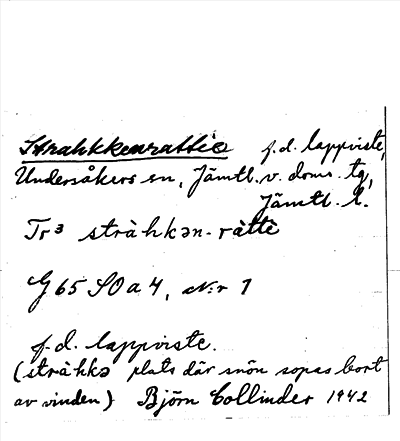 Strahkkenrattie f.d. lappviste,
Undersåkers sn, Jämtl. v. doms. tg,
Jämtl. l.
Tr³ stràhkən-ràttè
G 65 SO a 4, Nr 1
f.d. lappviste.
(stràhkə plats där snön sopas bort
av vinden) Björn Collinder 1942